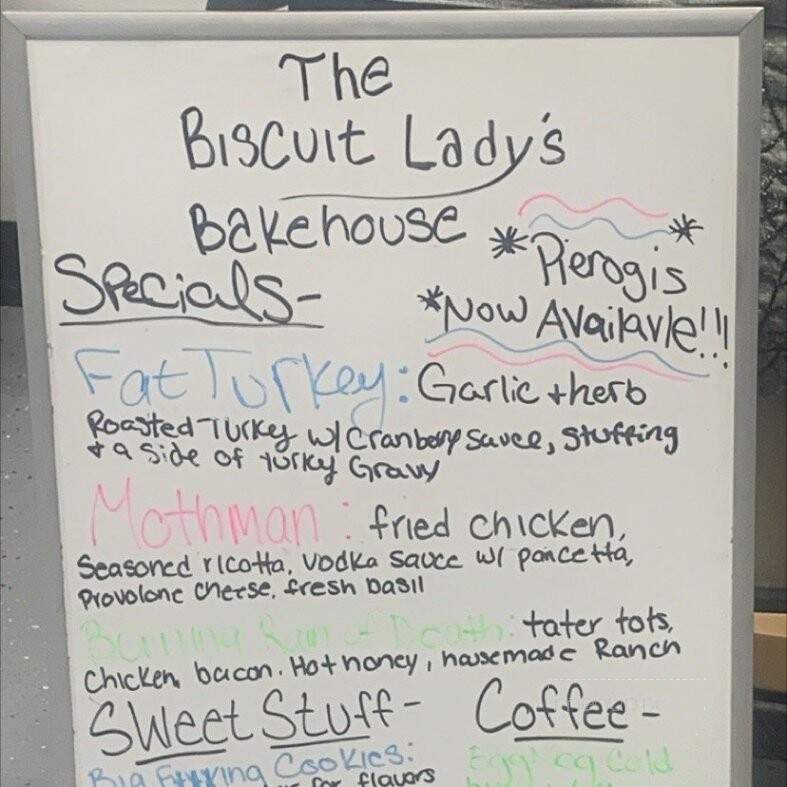 The
Biscuit Lady's
Bakehouse
*Pierogis*
*Now Availavle!!!
Specials-
Fat Turkey: Garlic + herb
Roasted Turkey w/ Cranbery sauce, Stuffing
+ a side of turky Gravy
Mothman: fried chicken,
Seasoned ricotta, vodka sauce w/ pancetta,
Provolone cheese, fresh basil
Burning Ring of Death: tater tots,
Chicken, bacon, Hot honey, housemade Ranch
Sweet Stuff- Coffee-
Big F***king Cookies: Eggnog Cold
for flavors